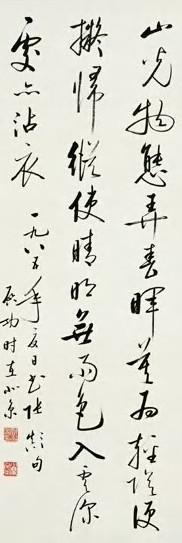 山光物態弄春暉莫為輕陰便
擬歸縱使晴明無雨色入雲深
處亦沾衣
一九八五年夏日書張顛句
啟功時在北京